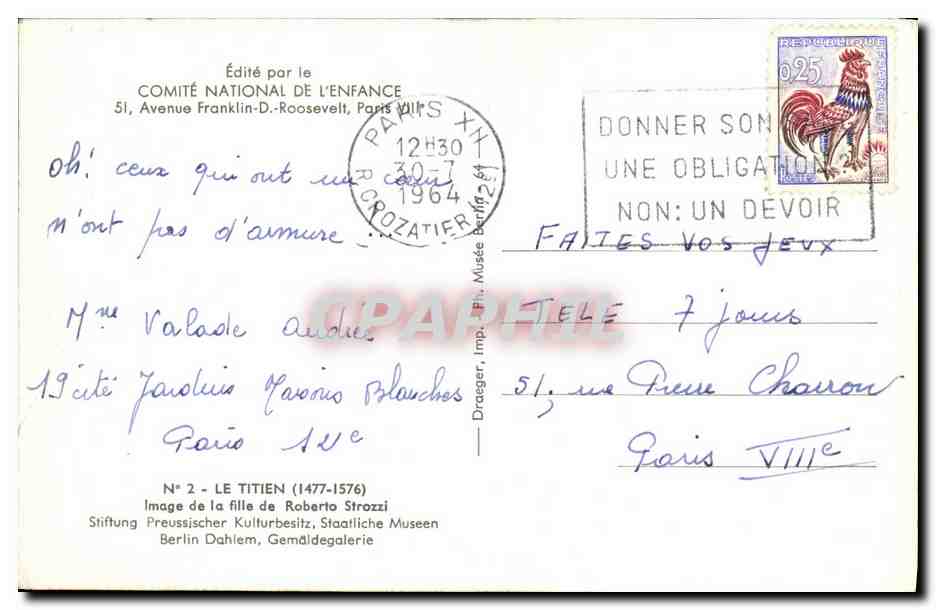 Édité par le
COMITÉ NATIONAL DE L'ENFANCE
51, Avenue Franklin-D.-Roosevelt, Paris VIIIᵉ
oh! ceux qui ont un cœur
n'ont pas d'armure ...
Mme Valade Andrée
19 cité Jardins Maisons Blanches
Paris 12e
N° 2 - LE TITIEN (1477-1576)
Image de la fille de Roberto Strozzi
Stiftung Preussischer Kulturbesitz, Staatliche Museen
Berlin Dahlem, Gemäldegalerie
Draeger, Imp. - Ph. Musée Berlin - 64
PARIS XII
12H30
30-7
1964
R. CROZATIER (12E)
DONNER SON
UNE OBLIGATION ?
NON: UN DEVOIR
REPUBLIQUE FRANÇAISE
0,25
POSTES
FAITES VOS JEUX
TELE 7 jours
51, rue Pierre Charron
Paris VIIIe
CPAPHIL